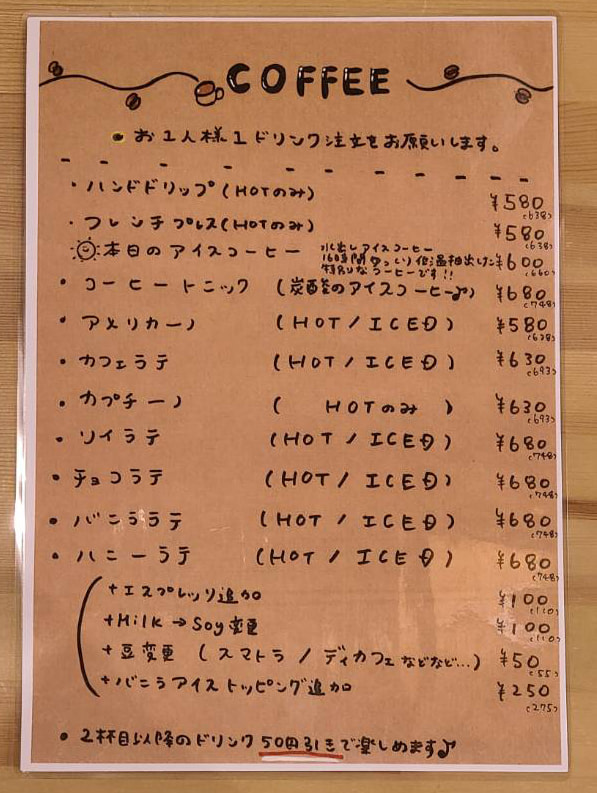 COFFEE
● お1人様1ドリンク注文をお願いします。
・ハンドドリップ(HOTのみ) ¥580 (638)
・フレンチプレス(HOTのみ) ¥580 (638)
本日のアイスコーヒー 水出しアイスコーヒー ¥600 (660)
16時間ゆっくり低温抽出した
特別なコーヒーです!!
・コーヒートニック (炭酸のアイスコーヒー♪) ¥680 (748)
・アメリカーノ (HOT / ICED) ¥580 (638)
・カフェラテ (HOT / ICED) ¥630 (693)
・カプチーノ ( HOTのみ ) ¥630 (693)
・ソイラテ (HOT / ICED) ¥680 (748)
・チョコラテ (HOT / ICED) ¥680 (748)
・バニララテ (HOT / ICED) ¥680 (748)
・ハニーラテ (HOT / ICED) ¥680 (748)
+エスプレッソ追加 ¥100 (110)
+Milk→Soy変更 ¥100 (110)
+豆変更 (スマトラ / ディカフェ などなど...) ¥50 (55)
+バニラアイストッピング追加 ¥250 (275)
● 2杯目以降のドリンク50円引きで楽しめます♪